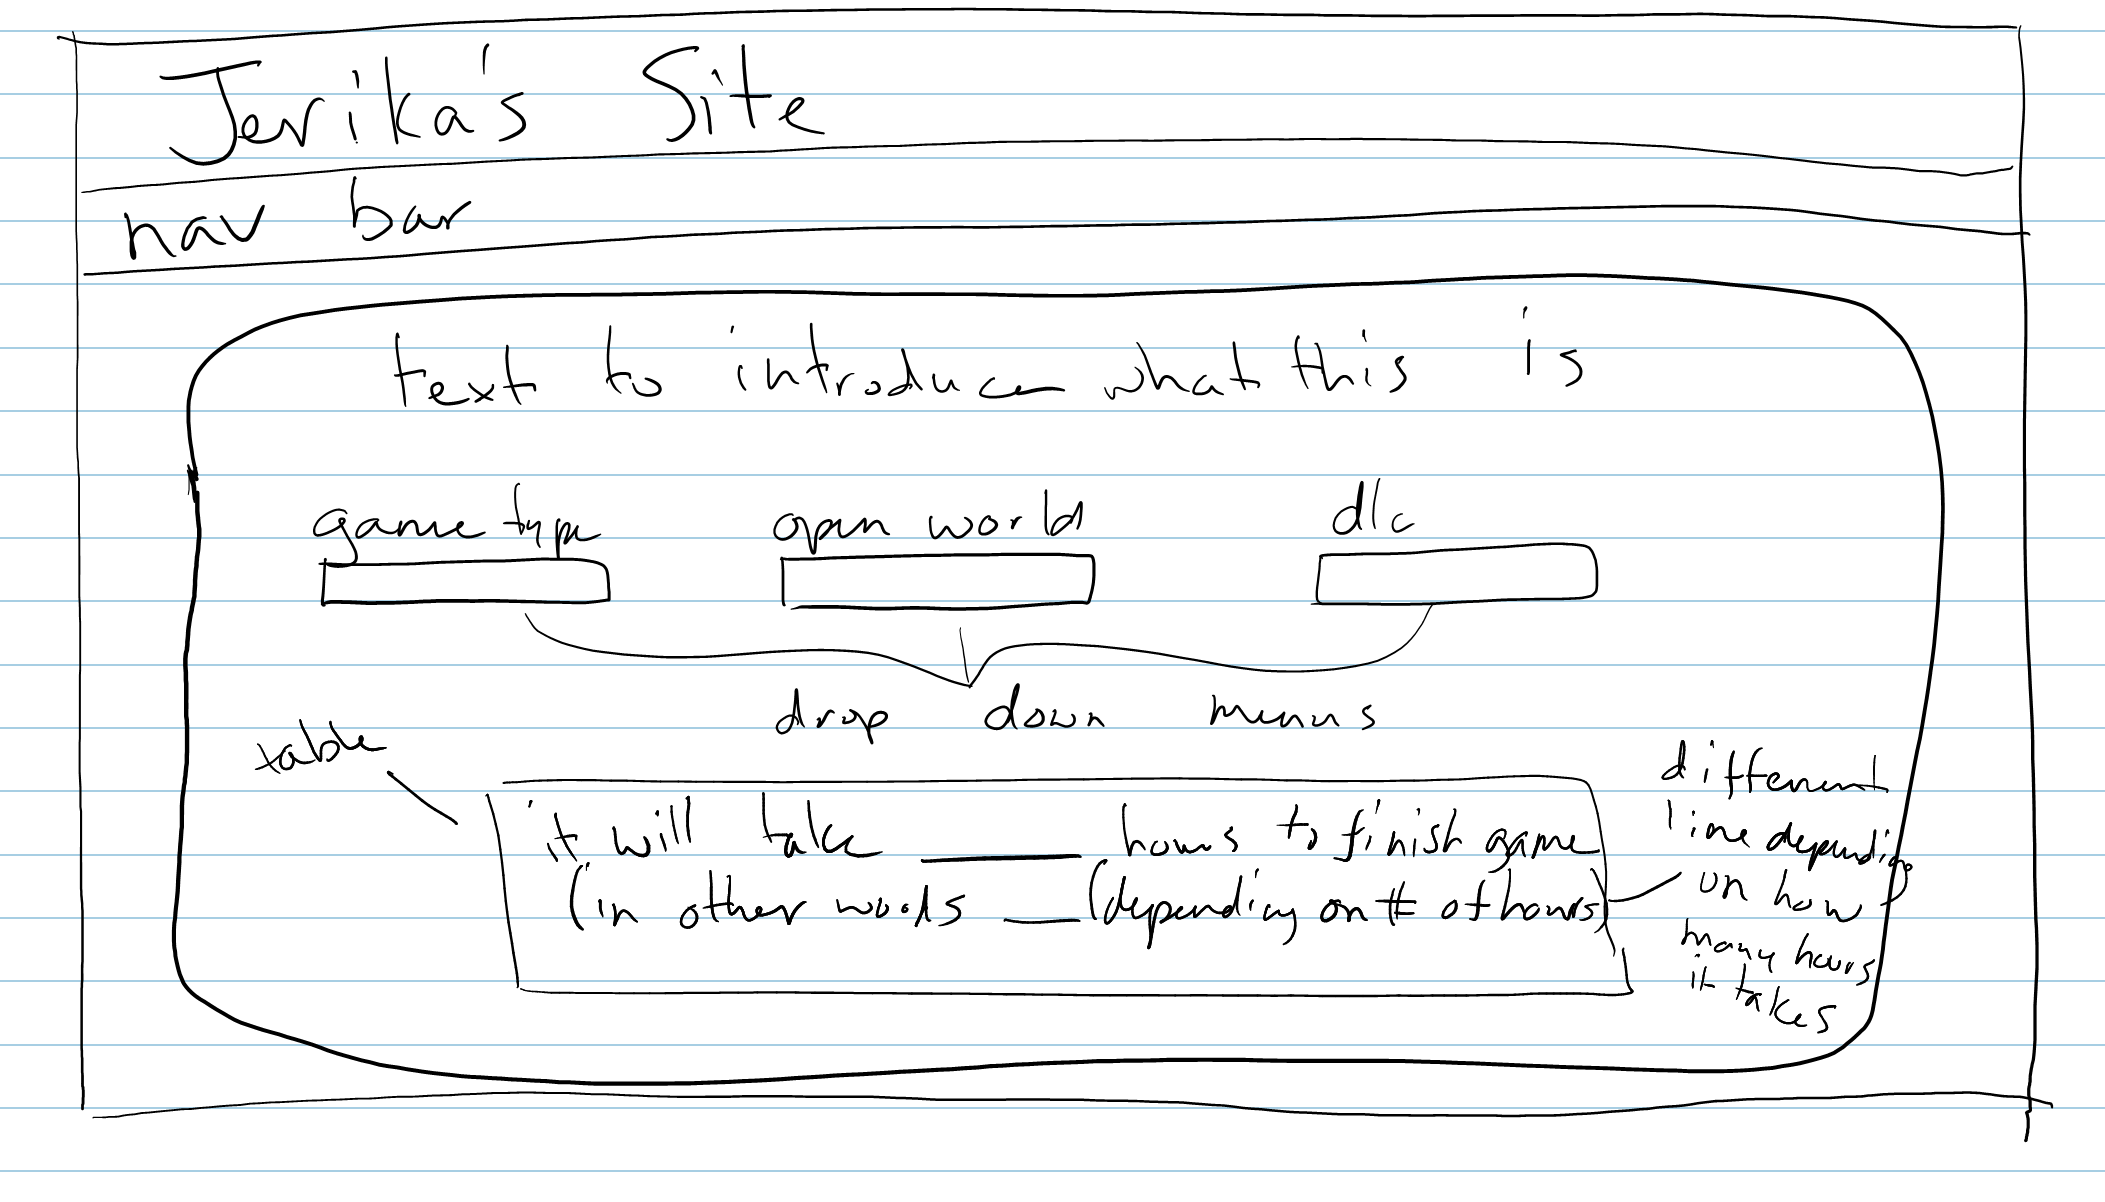 Jerika's Site
nav bar
text to introduce what this is
game type open world dlc
drop down menus
table
it will take ____ hours to finish game
(in other words __ (depending on # of hours)
different
line depending
on how
many hours
it takes